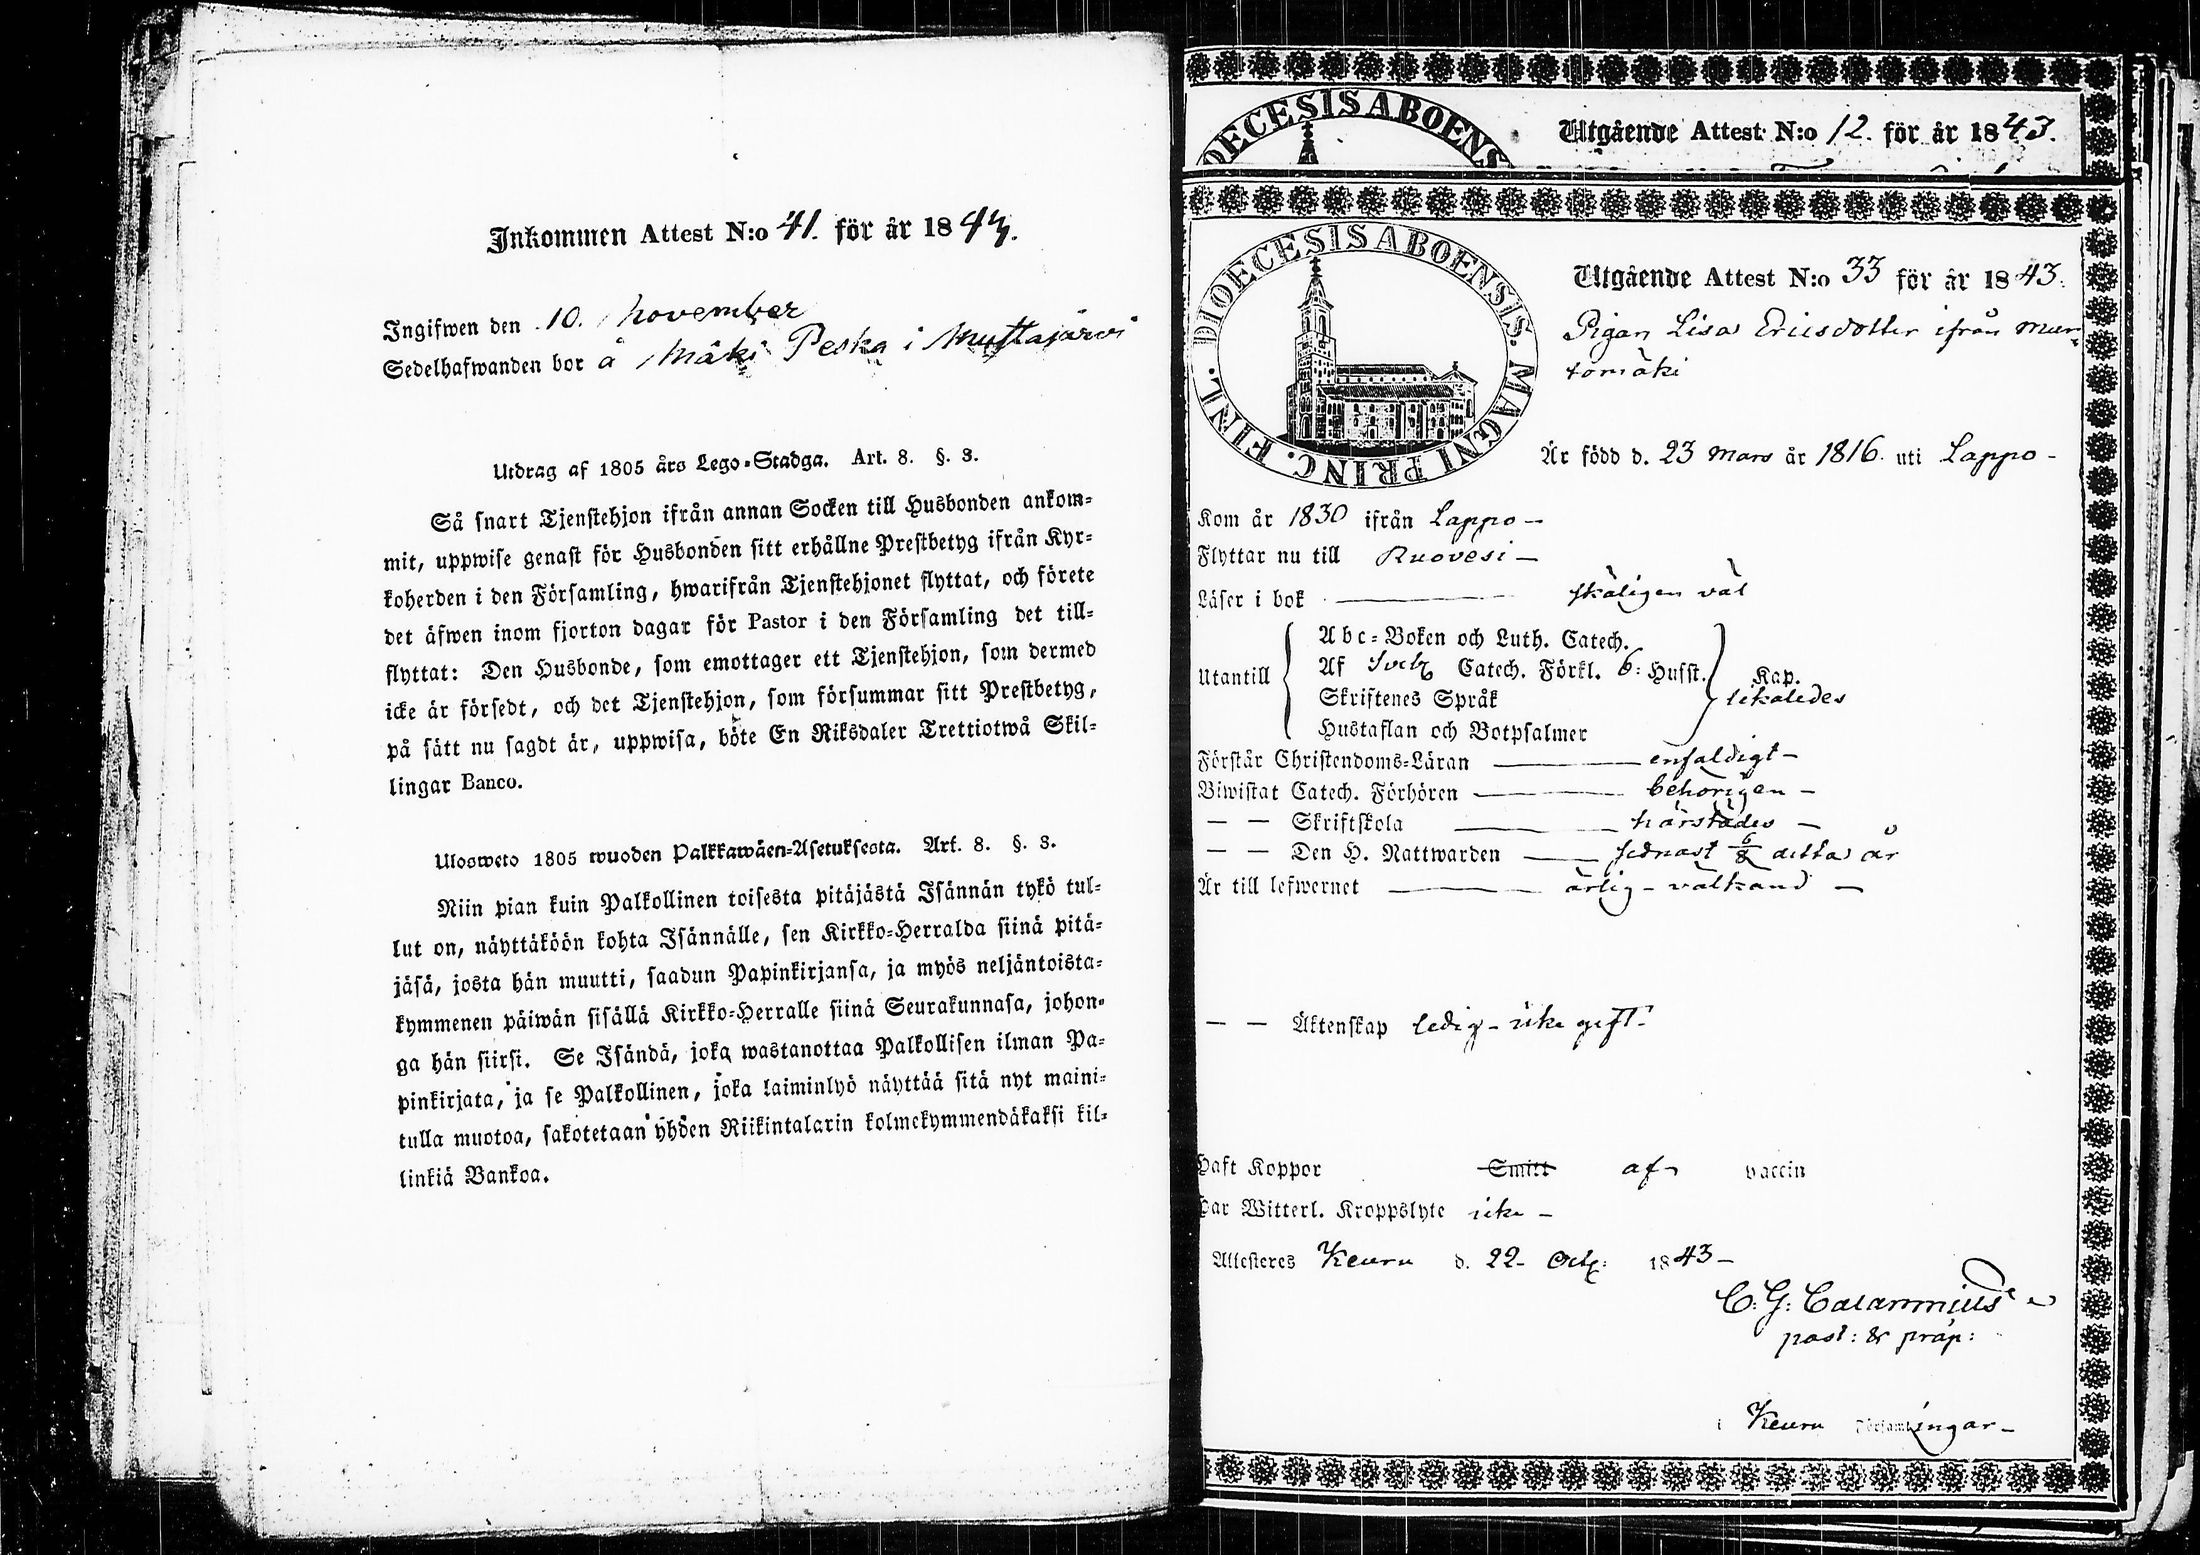 Inkommen Attest N:o 41. för år 1843.
Ingifwen den 10. november
Sedelhafwanden bor å Mäki Peska i Muttajärvi
Utdrag af 1805 års Lego-Stadga. Art. 8. §. 3.
Så snart Tjenstehjon ifrån annan Socken till Husbonden ankom-
mit, uppwise genast för Husbonden sitt erhållne Prestbetyg ifrån Kyr-
koherden i den Församling, hwarifrån Tjenstehjonet flyttat, och förete
det äfwen inom fjorton dagar för Pastor i den Församling det till-
flyttat: Den Husbonde, som emottager ett Tjenstehjon, som dermed
icke är försedt, och det Tjenstehjon, som försummar sitt Prestbetyg,
på sätt nu sagdt är, uppwisa, böte En Riksdaler Trettiotwå Skil-
lingar Banco.
Ulosweto 1805 wuoden Palkkawäen-Asetuksesta. Art. 8. §. 3.
Niin pian kuin Palkollinen toisesta pitäjästä Isännän tykö tul-
lut on, näyttäköön kohta Isännälle, sen Kirkko-Herralda siinä pitä-
jäsä, josta hän muutti, saadun Papinkirjansa, ja myös neljäntoista-
kymmenen päiwän sisällä Kirkko-Herralle siinä Seurakunnasa, johon-
ga hän siirsi. Se Isändä, joka wastanottaa Palkollisen ilman Pa-
pinkirjata, ja se Palkollinen, joka laiminlyö näyttää sitä nyt maini-
tulla muotoa, sakotetaan yhden Riikintalarin kolmekymmendäkaksi kil-
linkiä Bankoa.
DIOECESIS ABOENS
Utgående Attest N:o 12. för år 1843.
DIOECESIS ABOENSIS. MAGNI PRINC. FINL.
Utgående Attest N:o 33 för år 1843.
Pigan Lisa Ericsdotter ifrån Mur-
tomäki
Är född d. 23 Mars år 1816. uti Lappo -
Kom år 1830 ifrån Lappo -
Flyttar nu till Ruovesi -
Läser i bok skäligen väl
Utantill
Abc-Boken och Luth. Catech.
Af Sveb Catech. Förkl. 6: Husst. Kap.
Skriftenes Språk likaledes
Hustaflan och Botpsalmer
Förstår Christendoms-Läran enfaldigt -
Biwistat Catech. Förhören behörigen -
— — Skriftskola härstädes -
— — Den H. Nattwarden sednast 6/8 detta år
Är till lefwernet ärlig - välkänd -
— — Äktenskap ledig - icke gift -
Haft Koppor Smitt af vaccin
Har Witterl. Kroppslyte icke -
Attesteres Keuru d. 22 Octb: 1843 -
C: G: Calamnius
past: & præp:
i Keuru Församlingar -